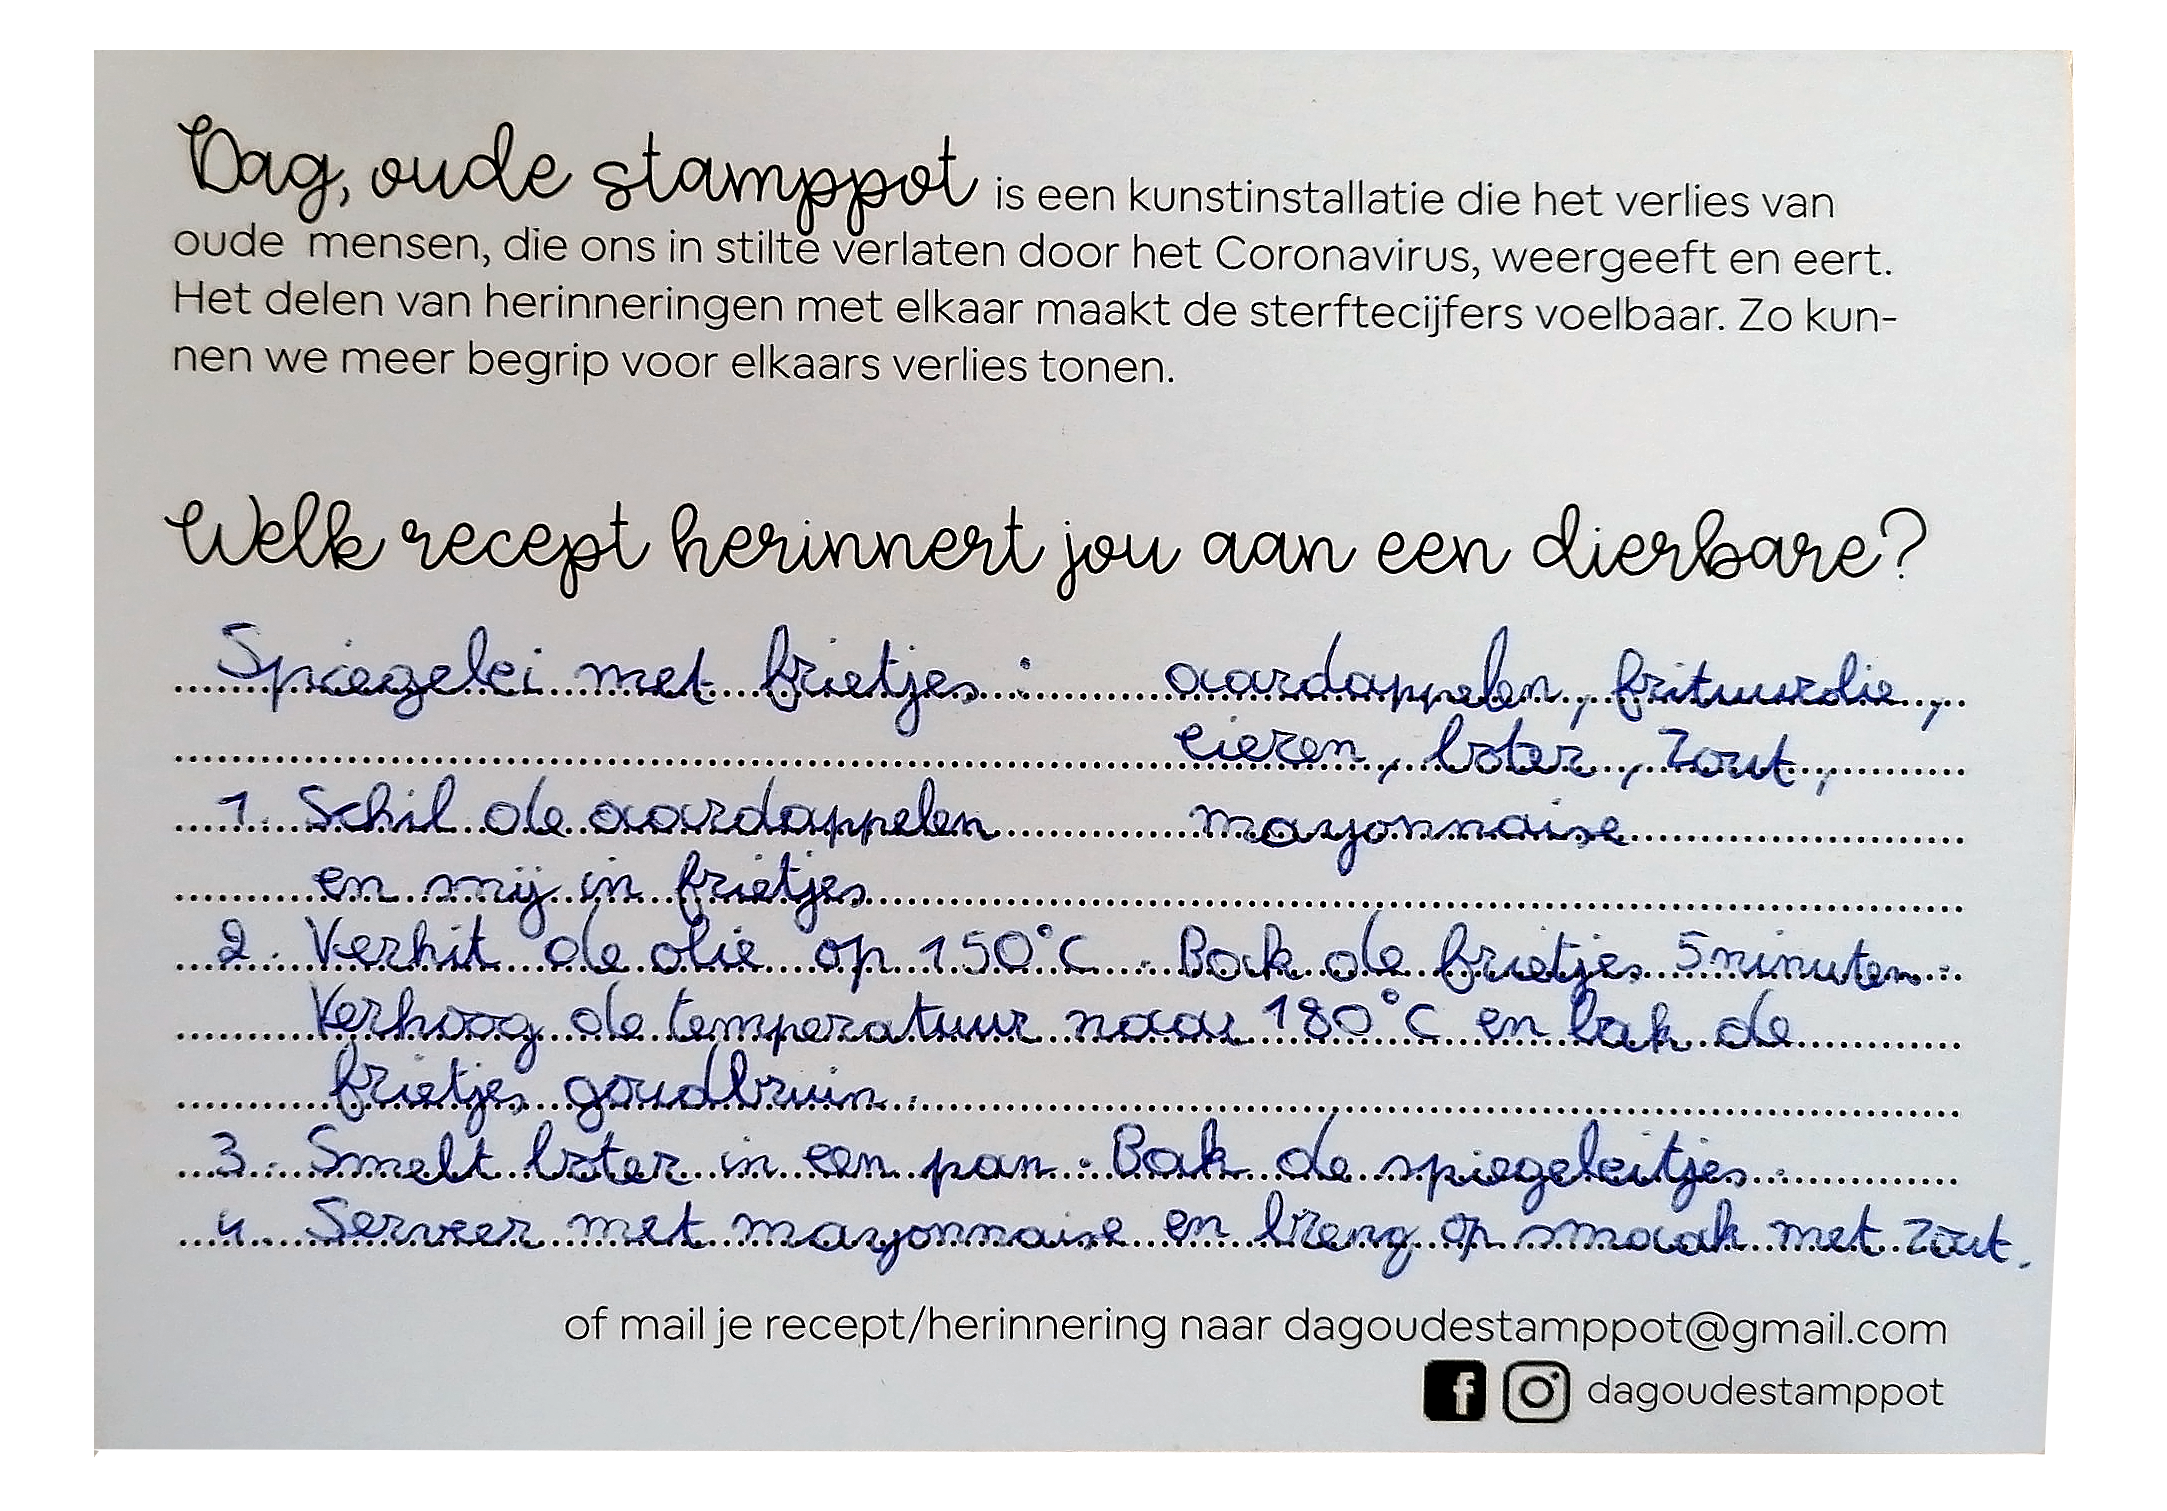 Dag, oude stamppot is een kunstinstallatie die het verlies van
oude mensen, die ons in stilte verlaten door het Coronavirus, weergeeft en eert.
Het delen van herinneringen met elkaar maakt de sterftecijfers voelbaar. Zo kun-
nen we meer begrip voor elkaars verlies tonen.
Welk recept herinnert jou aan een dierbare?
Spiegelei met frietjes : aardappelen, frituurolie,
eieren, boter, zout,
1. Schil de aardappelen mayonnaise
en snij in frietjes
2. Verhit de olie op 150°C. Bak de frietjes 5 minuten.
Verhoog de temperatuur naar 180°C en bak de
frietjes goudbruin.
3. Smelt boter in een pan. Bak de spiegeleitjes.
4. Serveer met mayonnaise en breng op smaak met zout.
of mail je recept/herinnering naar dagoudestamppot@gmail.com
dagoudestamppot